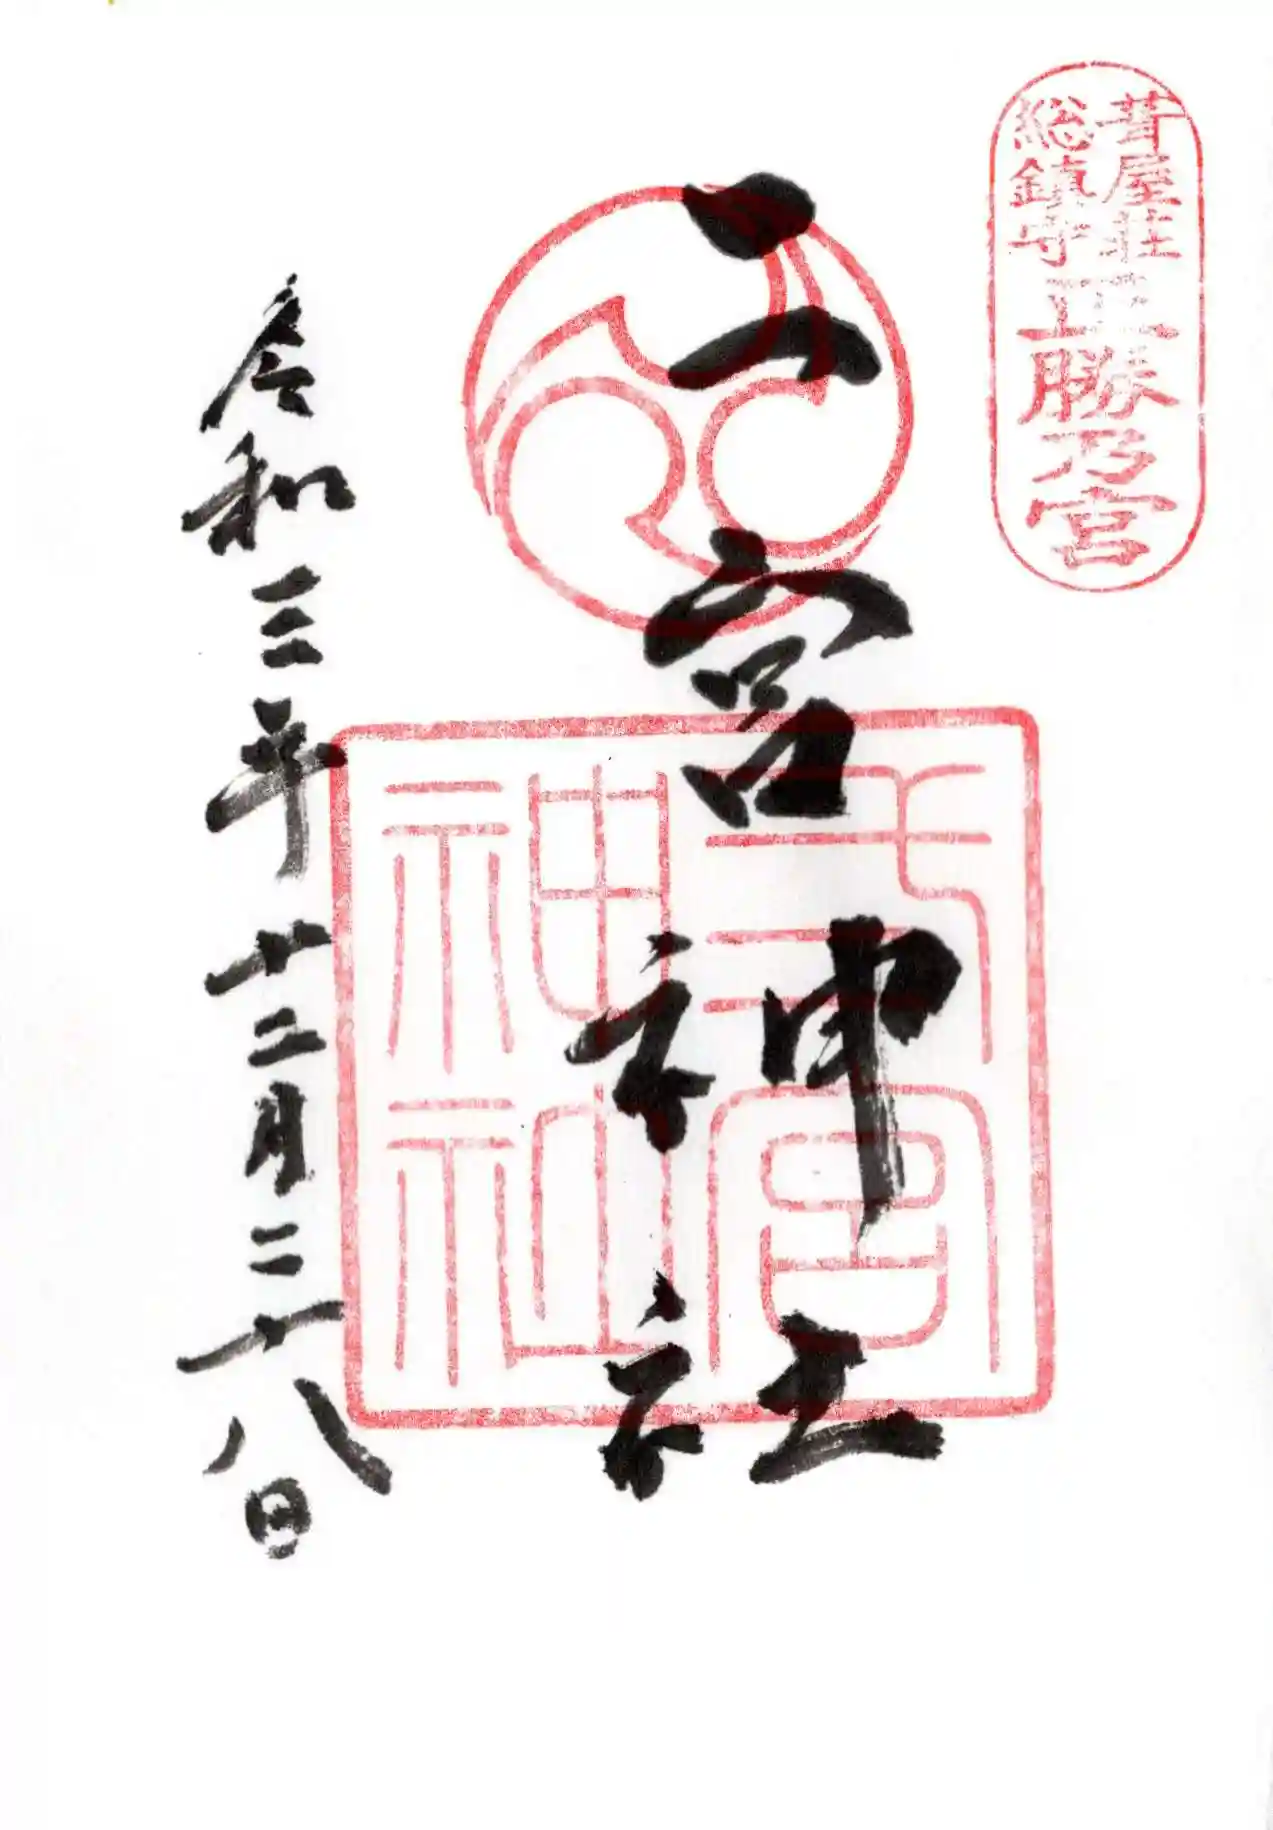 葺屋荘
総鎮守
正勝乃宮
二宮神社
令和三年十二月二十八日
宮
神社